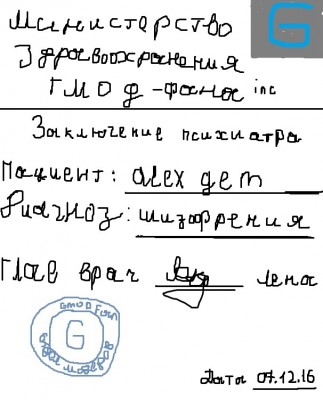 Министерство
Здравоохранения
ГМОД-фана inc
G
Заключение психиатра
Пациент: alex gem
Диагноз: шизофрения
Глав врач лена
GMOD Fan
G
Дата 07.12.16